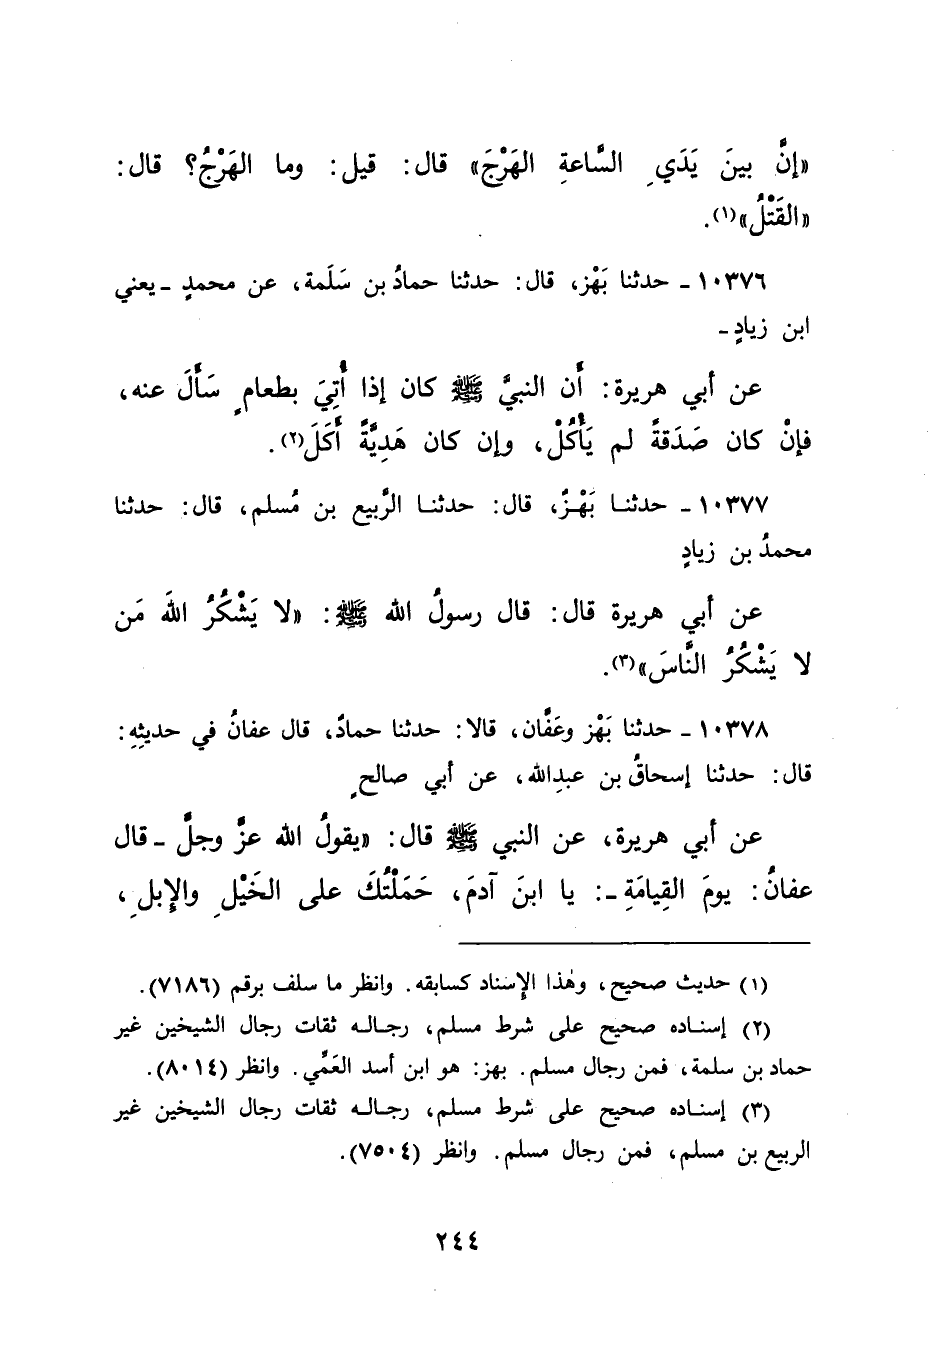 «إنَّ بينَ يَدَيِ السَّاعةِ الهَرْجَ» قال: قيل: وما الهَرْجُ؟ قال:
«القَتْلُ»(١).
١٠٣٧٦ ـ حدثنا بَهْز، قال: حدثنا حمادُ بن سَلَمة، عن محمدٍ ـ يعني
ابن زيادٍ ـ
عن أبي هريرة: أَن النبيَّ ﷺ كان إذا أُتِيَ بطعامٍ سَأَلَ عنه،
فإنْ كان صَدَقةً لم يَأْكُلْ، وإن كان هَدِيَّةً أَكَلَ(٢).
١٠٣٧٧ ـ حدثنا بَهْزٌ، قال: حدثنا الرَّبيع بن مُسلم، قال: حدثنا
محمدُ بن زيادٍ
عن أبي هريرة قال: قال رسولُ الله ﷺ: «لا يَشْكُرُ اللهَ مَن
لا يَشْكُرُ النَّاسَ»(٣).
١٠٣٧٨ ـ حدثنا بَهْز وعَفَّان، قالا: حدثنا حمادٌ، قال عفانُ في حديثِهِ:
قال: حدثنا إسحاقُ بن عبدِالله، عن أبي صالحٍ
عن أبي هريرة، عن النبي ﷺ قال: «يقولُ الله عزَّ وجلَّ ـ قال
عفانُ: يومَ القِيامَةِ ـ: يا ابنَ آدمَ، حَمَلْتُكَ على الخَيْلِ والإِبلِ،
(١) حديث صحيح، وهٰذا الإسناد كسابقه. وانظر ما سلف برقم (٧١٨٦).
(٢) إسناده صحيح على شرط مسلم، رجاله ثقات رجال الشيخين غير
حماد بن سلمة، فمن رجال مسلم. بهز: هو ابن أسد العَمِّي. وانظر (٨٠١٤).
(٣) إسناده صحيح على شرط مسلم، رجاله ثقات رجال الشيخين غير
الربيع بن مسلم، فمن رجال مسلم. وانظر (٧٥٠٤).
٢٤٤